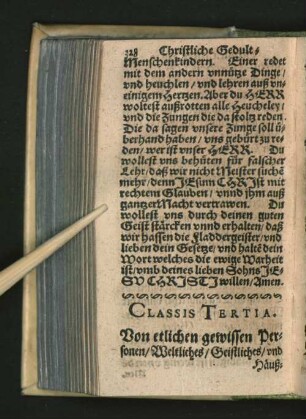 328 Christliche Gedult-
Menschenkindern. Einer redet
mit dem andern vnnütze Dinge/
vnd heuchlen/ vnd lehren auß vn-
einigem Hertzen. Aber du HERR
woltest außrotten alle Heucheley/
vnd die Zungen die da stoltz reden.
Die da sagen vnsere Zunge soll ü-
berhand haben/ vns gebürt zu re-
den/ wer ist vnser HERR. Du
wollest vns behüten für falscher
Lehr/ daß wir nicht Meister suchē
mehr/ denn JEsum CHRIst mit
rechtem Glauben/ vnnd jhm auß
gantzer Macht vertrawen. Du
wollest vns durch deinen guten
Geist stärcken vnnd erhalten/ daß
wir hassen die Fladdergeister/ vnd
lieben dein Gesetz/ vnd haltē dein
Wort welches die ewige Warheit
ist/ vmb deines lieben Sohns JE-
SV CHRISTJ willen/ Amen.
CLASSIS TERTIA.
Von etlichen gewissen Per-
sonen/ Weltliches/ Geistliches/ vnd
Häuß-